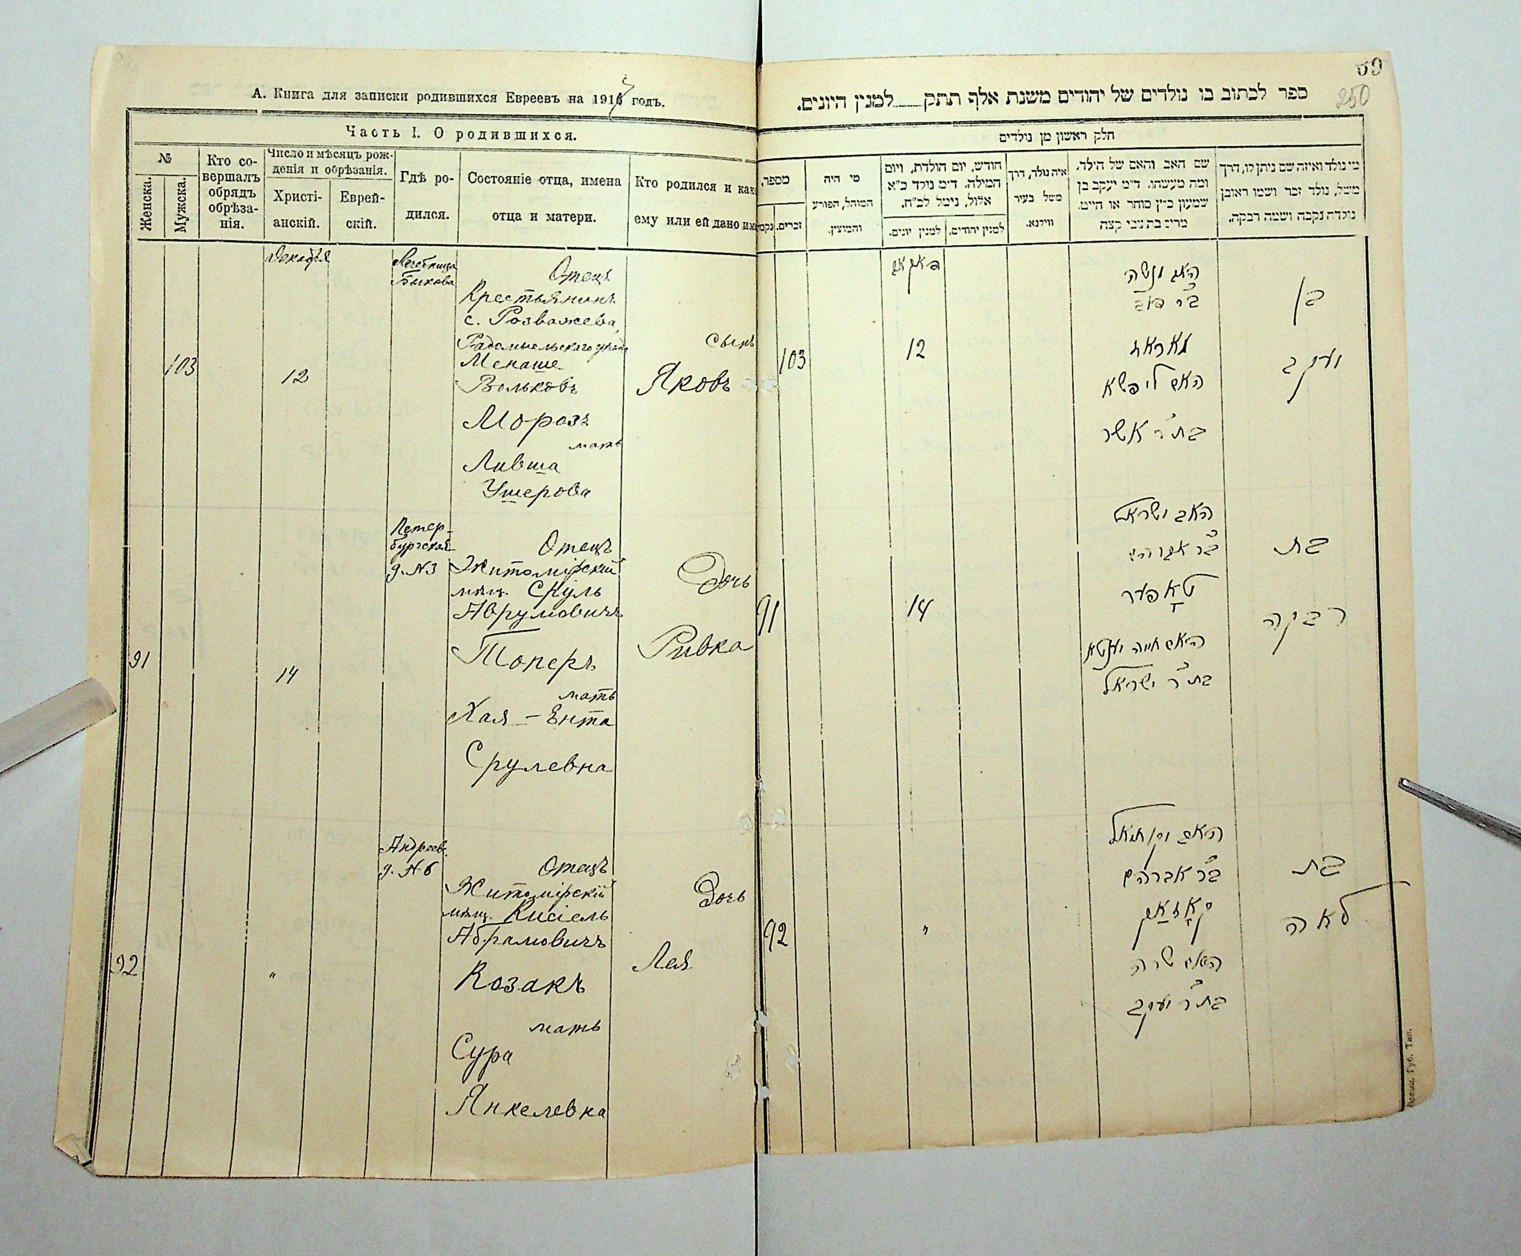 А. Книга для записки родившихся Евреевъ на 191 годъ.
Часть I. О родившихся.
№
Женска.
Мужска.
Кто со-
вершалъ
обрядъ
обрѣза-
нія.
Число и мѣсяцъ рож-
денія и обрѣзанія.
Христі-
анскій.
Еврей-
скій.
Гдѣ ро-
дился.
Состояніе отца, имена
отца и матери.
Кто родился и как
ему или ей дано им
Декабрь
Быкова
Отецъ
Крестьянинъ
с. Розважева,
Радомысльскаго уѣзда
Менаше
Вольковъ
Морозъ
мать
Ливша
Ушерова
103
12
Сынъ
Яковъ
Петер-
бургская
д. №3
Отецъ
Житомірскій
мѣщ. Сруль
Аврумовичъ
Топеръ
мать
Хая - Ента
Срулевна
91
14
Дочь
Ривка
Андреев.
д. №6
Отецъ
Житомірскій
мѣщ. Кисіель
Абрамовичъ
Козакъ
мать
Сура
Янкелевна
92
"
Дочь
Лея
69
250
ספר לכתוב בו נולדים של יהודים משנת אלף תתק ___ למנין היונים.
חלק ראשון מן נולדים
מספר.
זכרים.
נקב
מי היה
המוהל, הפורע
והמוצץ.
חודש, יום הולדת, ויום
המילה. ד״מ נולד כ״א
אלול, נימל לכ״ח.
למנין יונים.
למנין יהודים.
איה נולד, דרך
משל בעיר
ווילנא.
שם האב והאם של הילד,
ומה מעשהו. ד״מ יעקב בן
שמעון כ״ץ סוחר או חייט.
מרים בת צבי קצת
מי נולד ואיזה שם ניתן לו, דרך
משל, נולד זכר ושמו ראובן
נולדת נקבה ושמה רבקה.
103
12
האב מנשה
מאראז
האם ליפשא
בת ר' אשר
בן
יעקב
91
14
האב ישראל
בר אברהם
טאָפּער
האם חיה יענטא
בת ר' ישראל
בת
רבקה
92
"
האב יקותיאל
בר אברהם
קאָזאַק
האם שרה
בת ר' יעקב
בת
לאה
Губ. Тип.